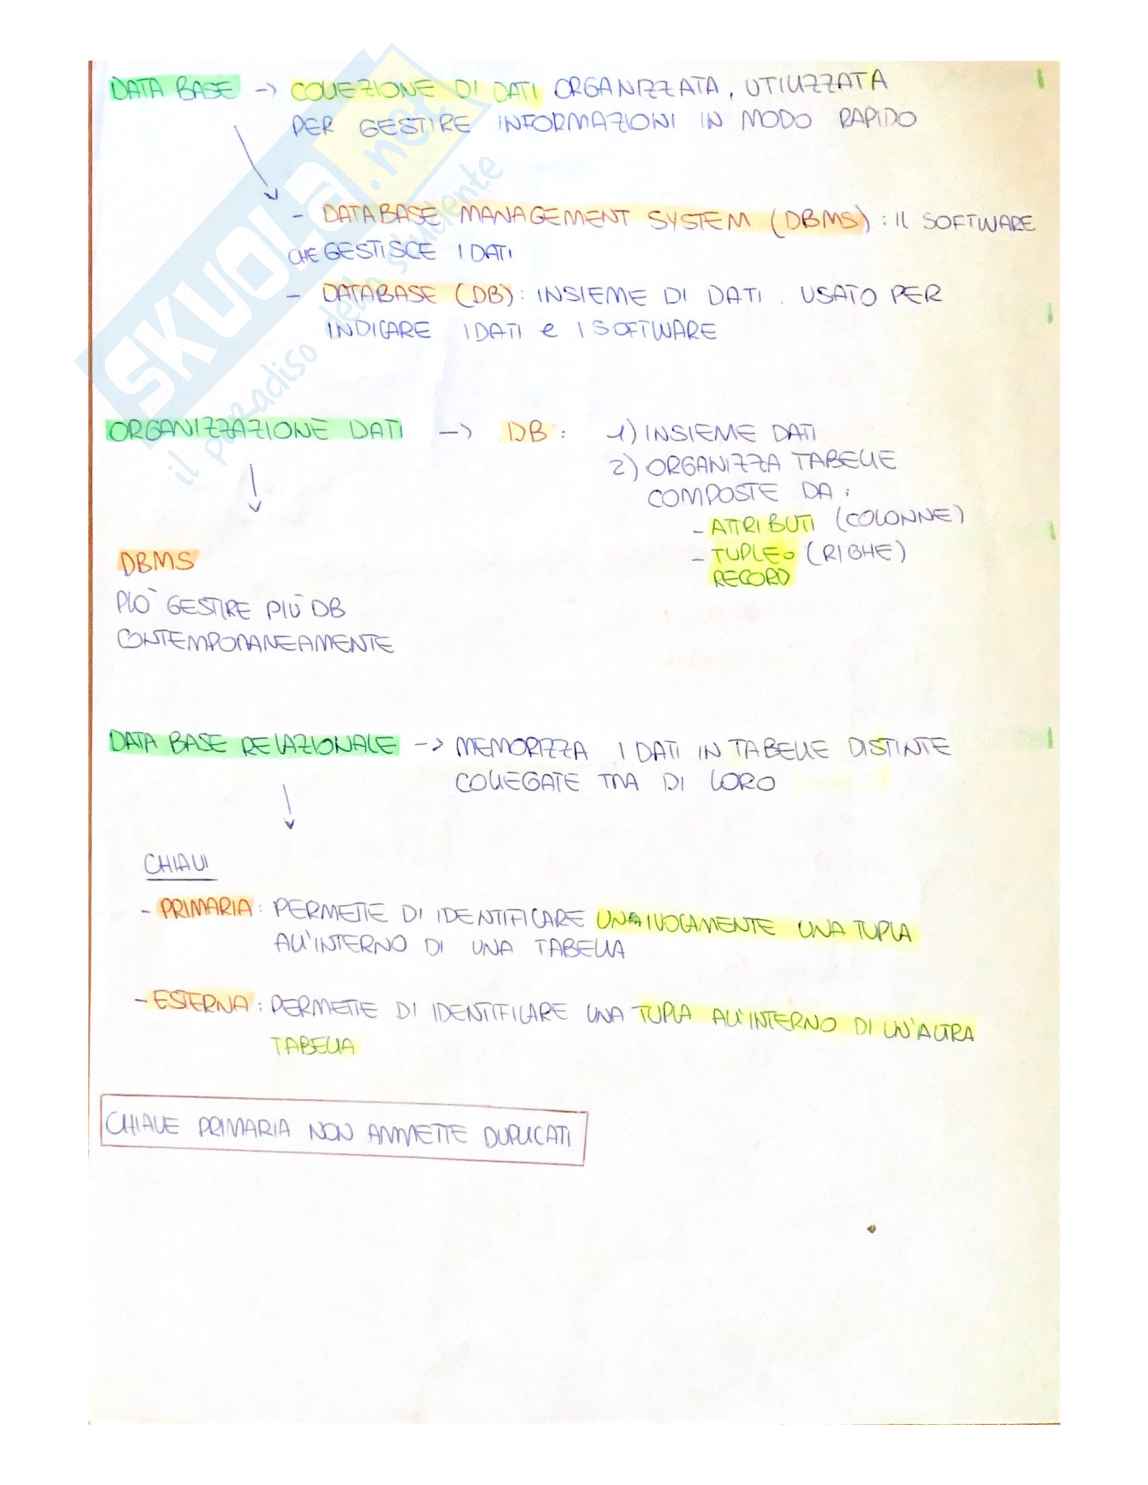 DATA BASE -> COLLEZIONE DI DATI ORGANIZZATA, UTILIZZATA
PER GESTIRE INFORMAZIONI IN MODO RAPIDO
- DATABASE MANAGEMENT SYSTEM (DBMS): IL SOFTWARE
CHE GESTISCE I DATI
- DATABASE (DB): INSIEME DI DATI. USATO PER
INDICARE I DATI e I SOFTWARE
ORGANIZZAZIONE DATI -> DB: 1) INSIEME DATI
2) ORGANIZZA TABELLE
COMPOSTE DA:
- ATTRIBUTI (COLONNE)
- TUPLE o (RIGHE)
RECORD
DBMS
PUÒ GESTIRE PIÙ DB
CONTEMPORANEAMENTE
DATA BASE RELAZIONALE -> MEMORIZZA I DATI IN TABELLE DISTINTE
COLLEGATE TRA DI LORO
CHIAVI
- PRIMARIA: PERMETTE DI IDENTIFICARE UNAIVOCAMENTE UNA TUPLA
ALL'INTERNO DI UNA TABELLA
- ESTERNA: PERMETTE DI IDENTIFICARE UNA TUPLA ALL'INTERNO DI UN'ALTRA
TABELLA
CHIAVE PRIMARIA NON AMMETTE DUPLICATI
SKUOLA.net
il paradiso dello studente